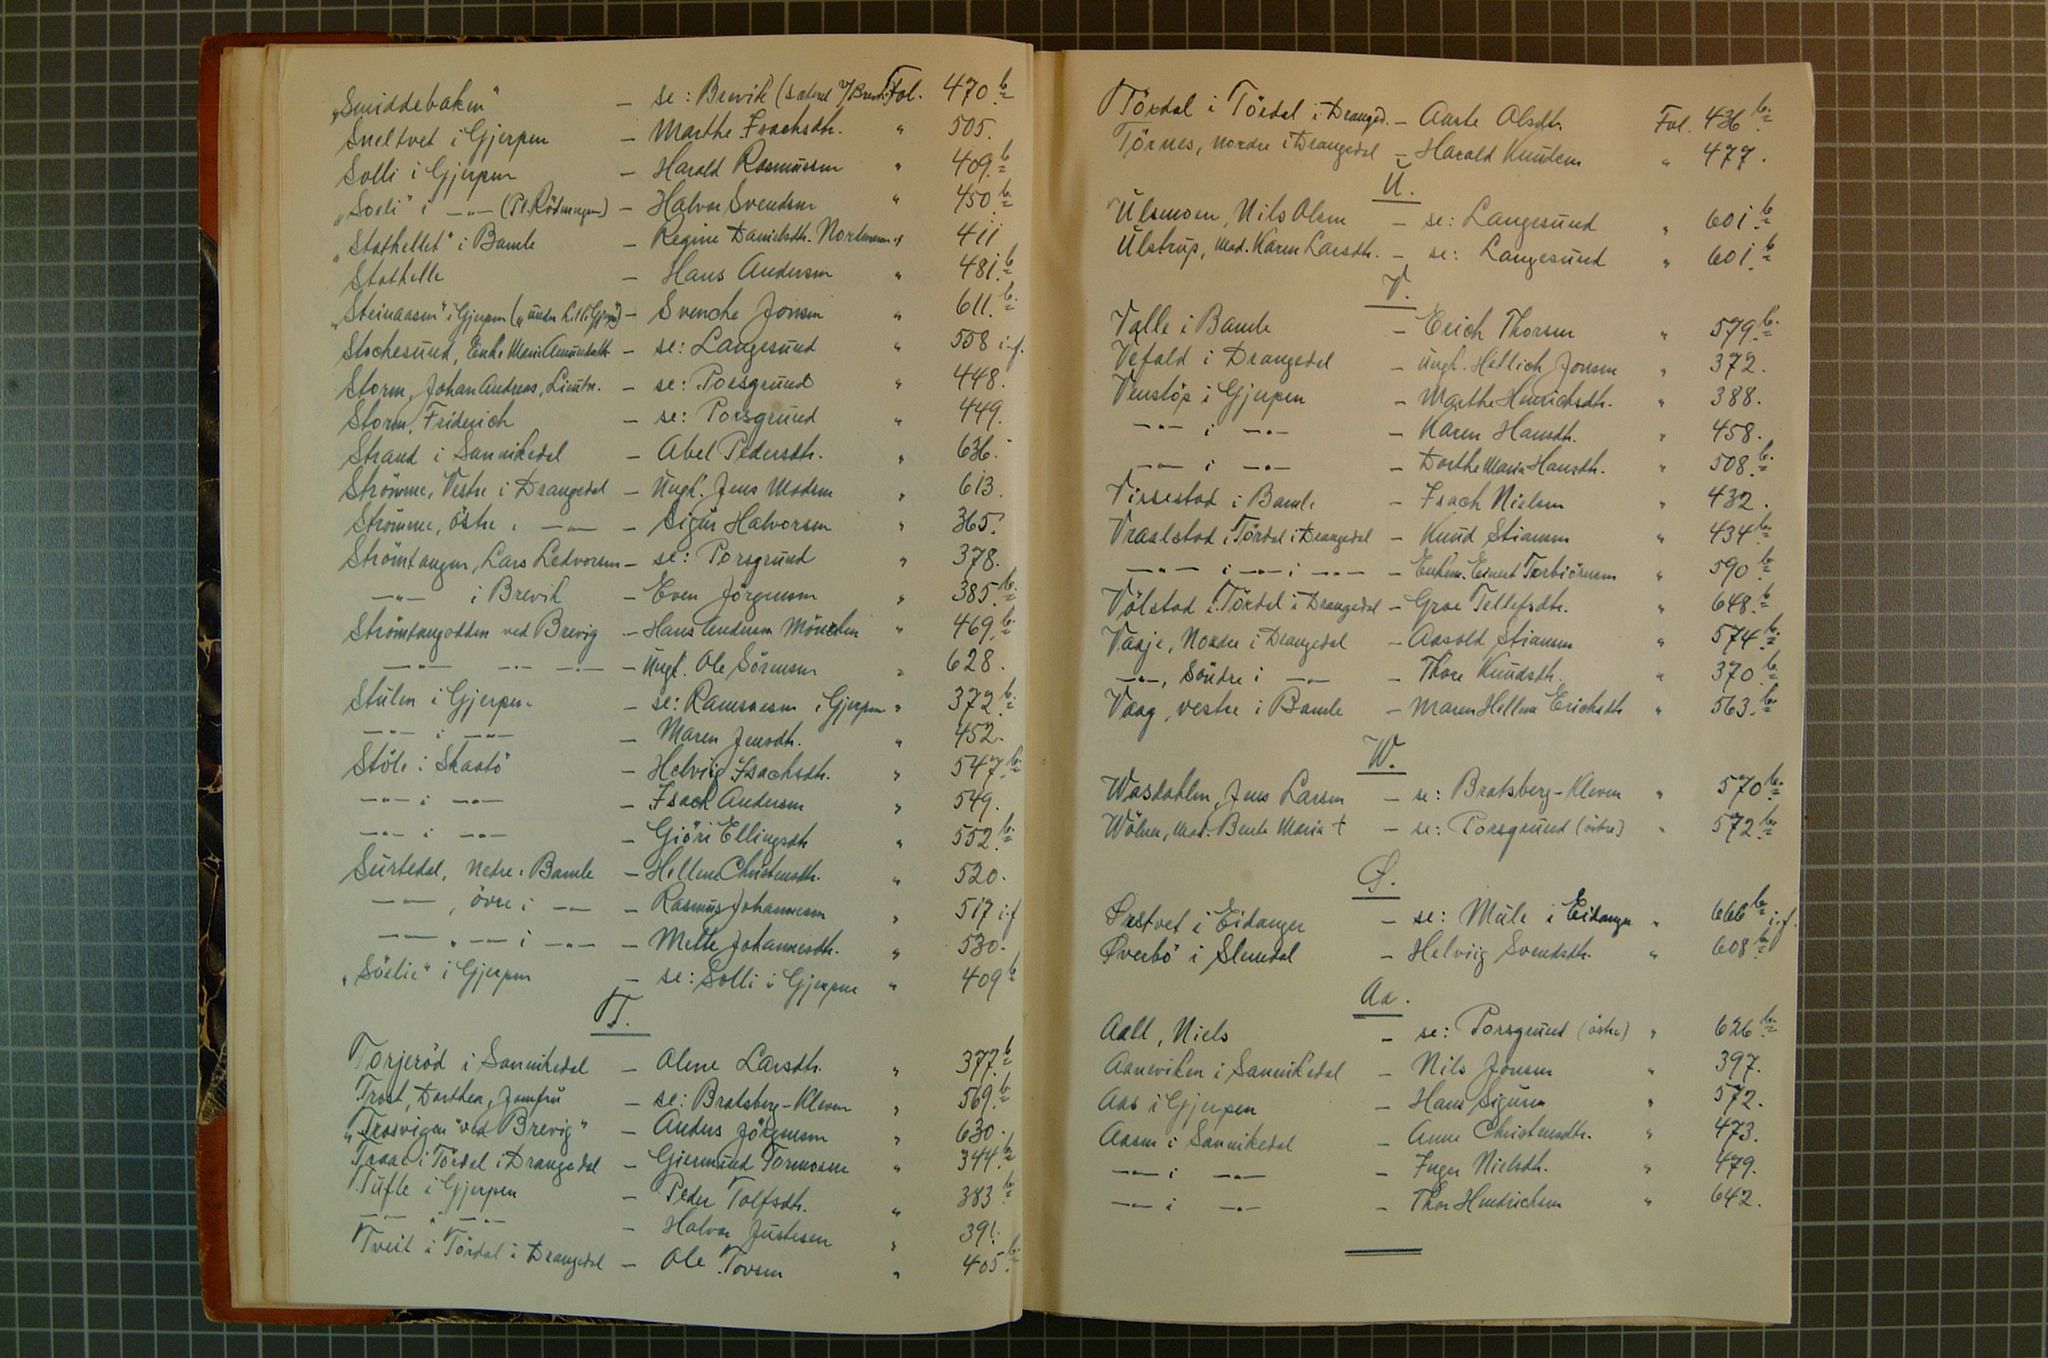 „Smiddebaken" — se: Brevik ( v/Brev.) Fol. 470 b.
Sneltvet i Gjerpen — Marthe Isachsdtr. " 505.
Solli i Gjerpen — Harald Rasmussen " 409. b
„Soeli" i —"— (Pl. Rödningen) — Halvor Svendsen " 450 b.
„Stathellet" i Bamle — Regine Danielsdtr. Nordmann " 411
Stathelle — Hans Andersen " 481. b
„Steinaasen" i Gjerpen („under Gjerp.) — Svenche Jonsen " 611. b.
Stochesund, Enke Maria Amundsdtr. — se: Langesund " 558 i.f.
Storm, Johan Andreas, Lieutn. — se: Porsgrund " 448.
Storm, Friderich — se: Porsgrund " 449.
Strand i Sannikedal — Abel Pedersdtr. " 636.
Strömme, Vestre i Drangedal — Ungk. Jens Madsen " 613.
Strömme, östre i —"— — Sigur Halvorsen " 365.
Strömtangen, Lars Ledvorsen — se: Porsgrund " 378.
—"— i Brevik — Even Jörgensen " 385. b.
Strömtangodden ved Brevig — Hans Andersen Mönichen " 469. b
—"— —"— —"— — Ungk. Ole Sörensen " 628.
Stulen i Gjerpen. — se: Ramsaasen i Gjerpen " 372. b.
—"— i —"— — Maren Jensdtr. " 452.
Stöle i Skaatö — Helviig Isachsdtr. " 547. b.
—"— i —"— — Isach Andersen " 549.
—"— i —"— — Giöri Ellingsdtr. " 552. b.
Surtedal, nedre i Bamle — Hellene Christensdtr. " 520.
—"—, övre i —"— — Rasmus Johannesen " 517 i.f.
—"— " —"— i —"— — Mette Johannesdtr. " 530.
„Söelie" i Gjerpen — se: Solli i Gjerpen " 409 b
T.
Torjeröd i Sannikedal — Olene Larsdtr. " 377. b
Trost, Dorthea, Jomfru — se: Bratsberg-Kleven " 569. b.
„Trosvigen" ved Brevig" — Anders Jörgensen " 630.
Traae i Tördal i Drangedal — Giermund Tormosen " 344. b.
Tufte i Gjerpen — Peder Tolfsdtr. " 383 b.
—"— " —"— — Halvor Justesen " 391.
Tveit i Tördal i Drangedal — Ole Tovsen " 405. b.
Tördal i Tördal i Dranged. — Aaste Olsdtr. Fol. 436 b.
Törnes, nordre i Drangedal — Harald Knudsen " 477.
U.
Ulsmoen, Nils Olsen — se: Langesund " 601. b.
Ulstrup, Mad. Karen Larsdtr. — se: Langesund " 601. b
V.
Valle i Bamle — Erich Thorsen " 579. b.
Vefald i Drangedal — Ungk. Hellich Jonsen " 372.
Venstöp i Gjerpen — Marthe Henrichsdtr. " 388.
—"— i —"— — Karen Hansdtr. " 458.
—"— i —"— — Dorthe Maria Hansdtr. " 508. b.
Vissestad i Bamle — Isach Nielsen " 432.
Vraalstad i Tördal i Drangedal — Knud Stiansen " 434 b.
—"— i —"— i —"— — Enkem. Einert Torbiörnsen " 590 b.
Völstad i Tördal i Drangedal — Groe Tellefsdtr. " 648. b.
Vaaje, Nordre i Drangedal — Aasold Stiansen " 574 b.
—"—, Söndre i —"— — Thore Knudsdtr. " 370 b.
Vaag, vestre i Bamle — Maren Hellene Erichsdtr. " 563. b.
W.
Wasdahlen, Jens Larsen — se: Bratsberg-Kleven " 570 b.
Wölner, Mad. Bente Maria + — se: Porsgrund (östre) " 572 b.
Ø.
Øretvet i Eidanger — se: Mule i Eidanger " 666 b. i.f.
Øverbö i Slemdal — Helviig Svendsdtr. " 608 b.
Aa.
Aall, Niels — se: Porsgrund (östre) " 626 b.
Aaneviken i Sannikedal — Nils Jonsen " 397.
Aas i Gjerpen — Hans Sigursen " 572.
Aasen i Sannikedal — Anne Christensdtr. " 473.
—"— i —"— — Inger Nielsdtr. " 479.
—"— i —"— — Thor Hendrichsen " 642.